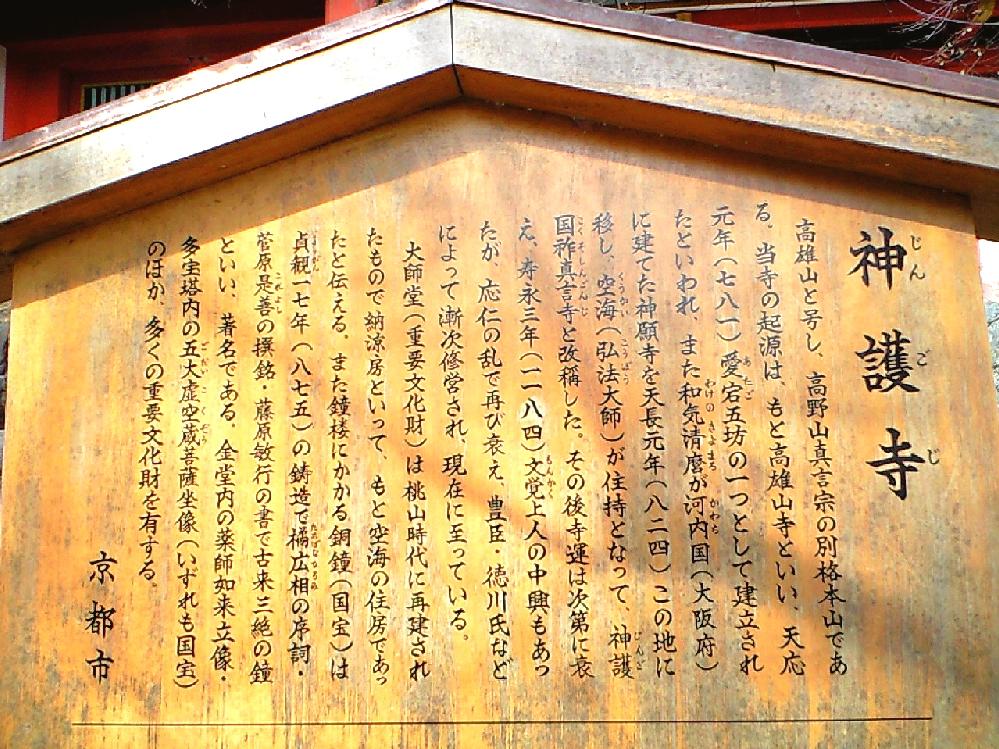 神護寺
じんごじ
高雄山と号し、高野山真言宗の別格本山であ
る。当寺の起源は、もと高雄山寺といい、天応
元年（七八一）愛宕五坊の一つとして建立され
たといわれ、また和気清麿が河内国（大阪府）
に建てた神願寺を天長元年（八二四）この地に
移し、空海（弘法大師）が住持となって、神護
国祚真言寺と改称した。その後寺運は次第に衰
え、寿永三年（一一八四）文覚上人の中興もあっ
たが、応仁の乱で再び衰え、豊臣・徳川氏など
によって漸次修営され、現在に至っている。
大師堂（重要文化財）は桃山時代に再建され
たもので納涼房といって、もと空海の住房であっ
たと伝える。また鐘楼にかかる銅鐘（国宝）は
貞観一七年（八七五）の鋳造で橘広相の序詞・
菅原是善の撰銘・藤原敏行の書で古来三絶の鐘
といい、著名である。金堂内の薬師如来立像・
多宝塔内の五大虚空蔵菩薩坐像（いずれも国宝）
のほか、多くの重要文化財を有する。
京都市